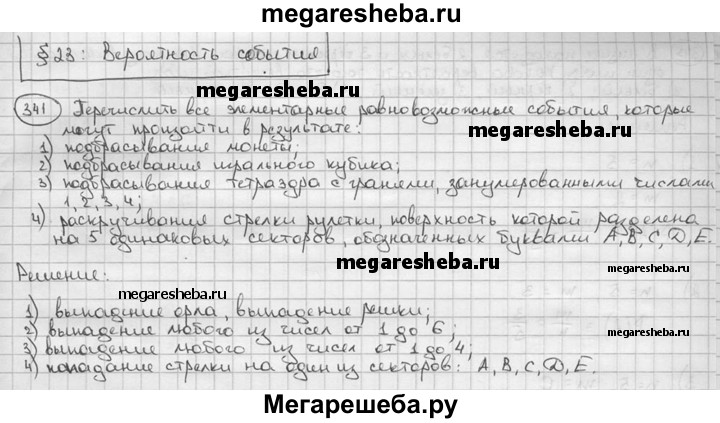 megaresheba.ru
§ 23: Вероятность события
megaresheba.ru
341 Перечислить все элементарные равновозможные события, которые
могут произойти в результате:
megaresheba.ru
1) подбрасывания монеты;
2) подбрасывания игрального кубика;
3) подбрасывания тетраэдра с гранями, занумерованными числами
1, 2, 3, 4;
4) раскручивания стрелки рулетки, поверхность которой разделена
на 5 одинаковых секторов, обозначенных буквами A, B, C, D, E.
megaresheba.ru
Решение:
megaresheba.ru
1) выпадение орла, выпадение решки;
2) выпадение любого из чисел от 1 до 6;
megaresheba.ru
3) выпадение любого из чисел от 1 до 4;
4) попадание стрелки на один из секторов: A, B, C, D, E.
Мегарешеба.ру